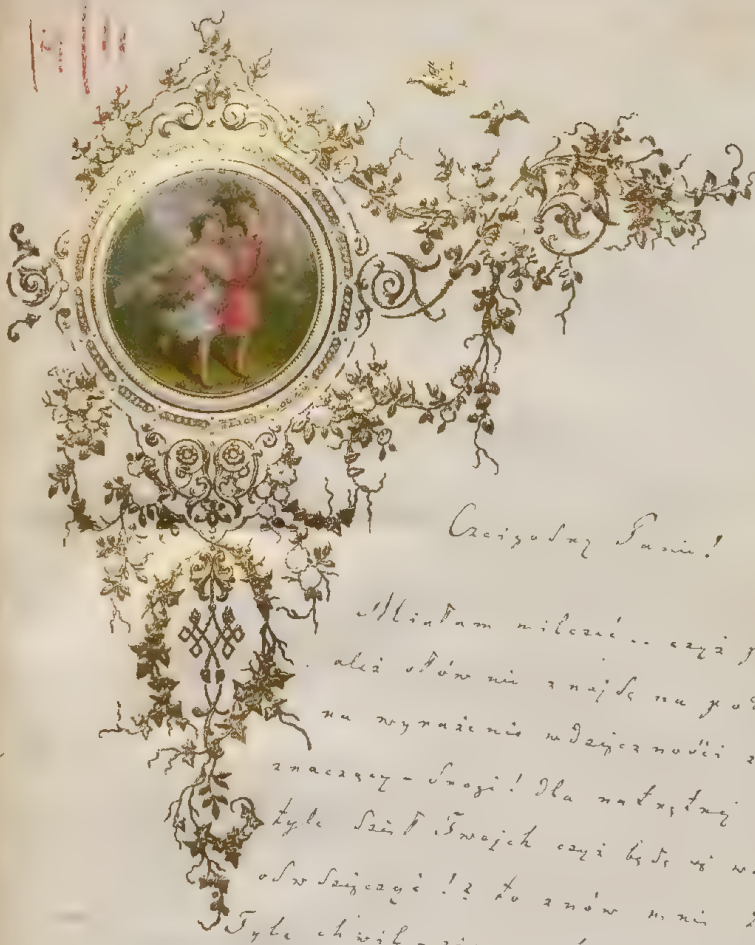 Czcigodny Panie!
Miałam milczeć .. czyż
ależ słów nie znajdę na
na wyrażenie wdzięczności
znaczący - drogi! Dla natrętnej
tyle dzieł Twojch czyż będę
odwdzięczyć !? to znów
Tyle chwil